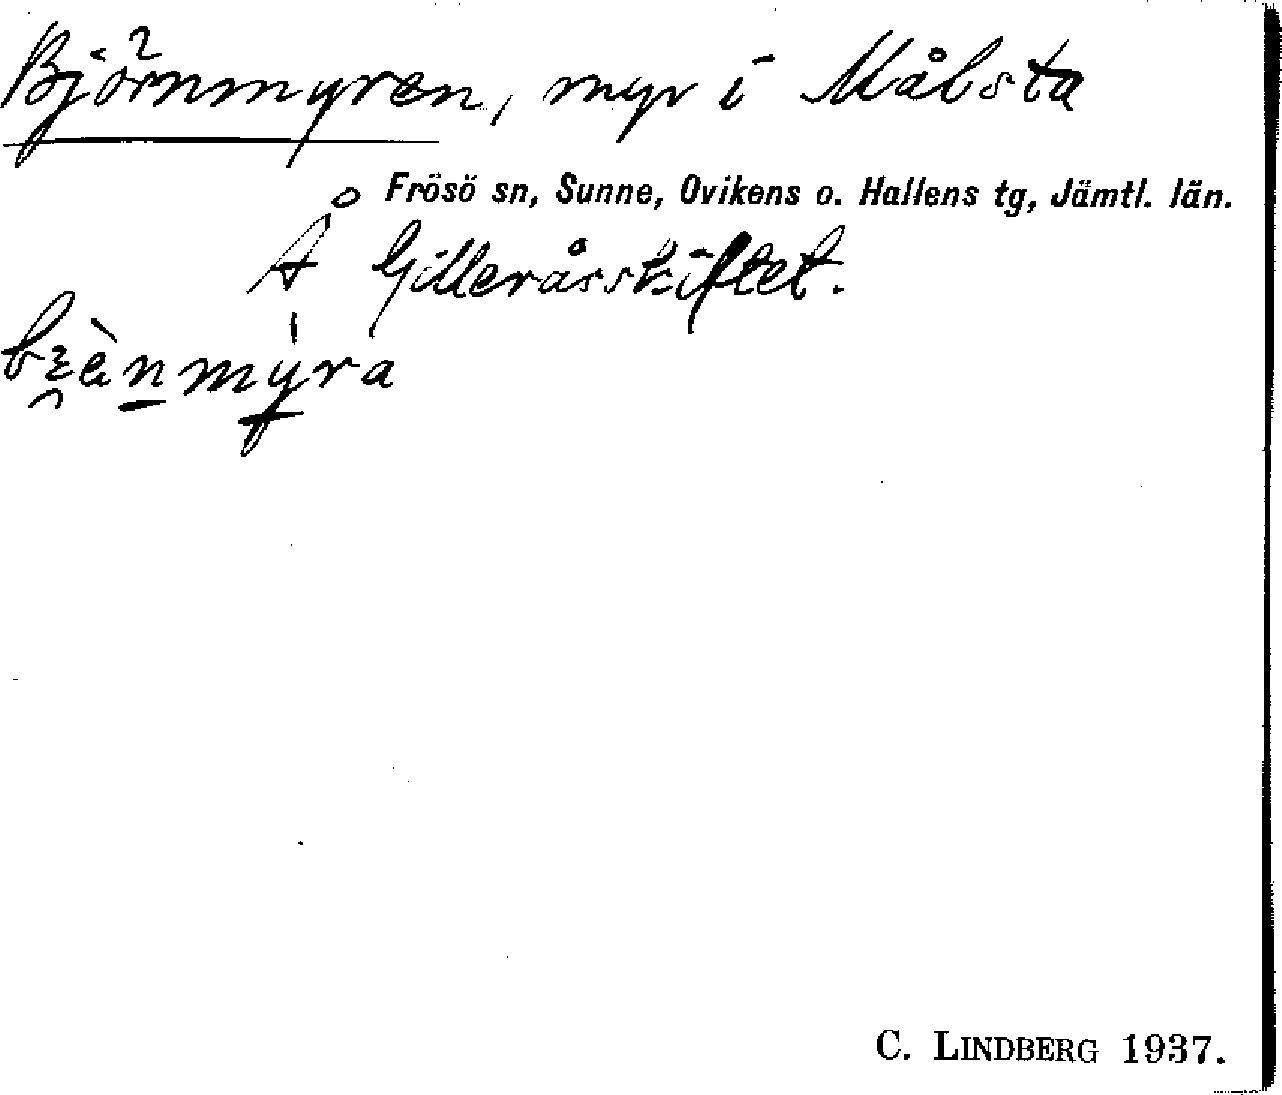 Björnmyren, myr i Målsta
Frösö sn, Sunne, Ovikens o. Hallens tg, Jämtl. län.
Å Gilleråsskiftet.
C. LINDBERG 1937.